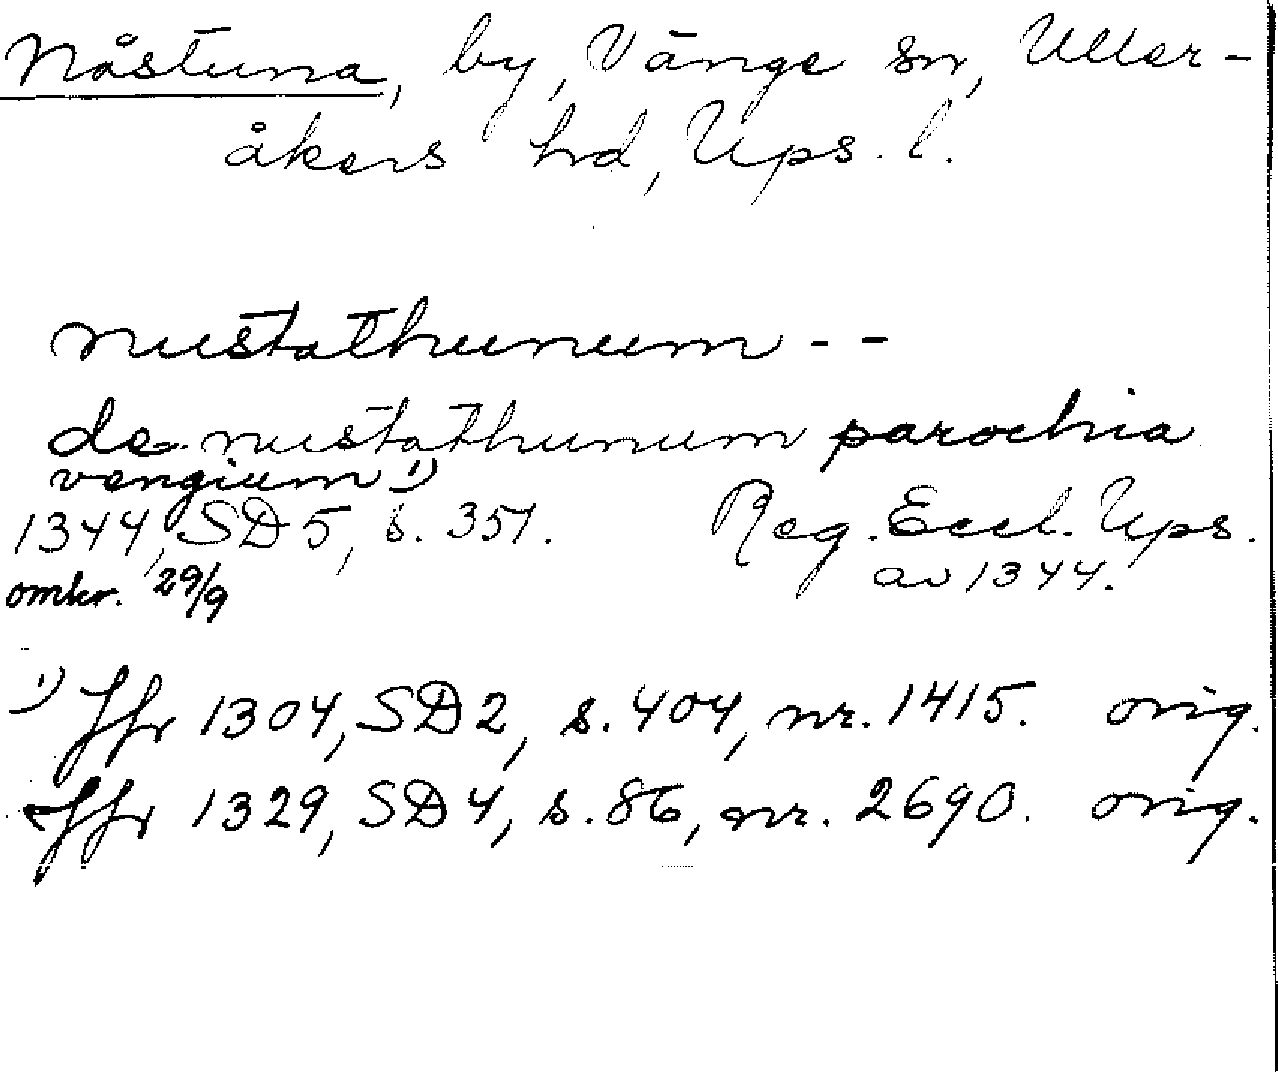 Nåstuna, by, Vänge sn, Uller-
åkers hrd, Ups. l.
nustathunum - -
de nustathunum parochia
vengium 1)
1344, SD 5, s. 351. Reg. Eccl. Ups.
omkr. 29/9 av 1344.
1) Jfr 1304, SD 2, s. 404, nr. 1415. orig.
Jfr 1329, SD 4, s. 86, nr. 2690. orig.